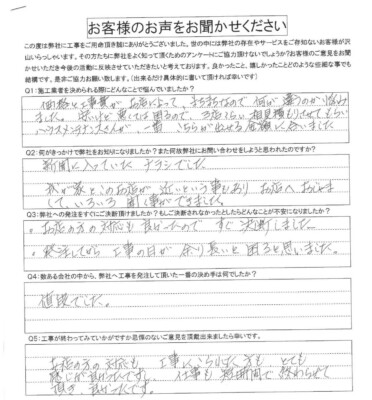 お客様のお声をお聞かせください
この度は弊社に工事をご用命頂き誠にありがとうございました。世の中には弊社の存在やサービスをご存知ないお客様が沢
山いらっしゃいます。その方たちに弊社をよく知って頂くためのアンケートにご協力頂けないでしょうか?お客様のご意見をお聞
かせいただき今後の活動に反映させていただきたいと考えております。良かったこと、嬉しかったことどのような些細な事でも
結構です。是非ご協力お願い致します。(出来るだけ具体的に書いて頂ければ幸いです)
Q1:施工業者を決められる際にどんなことで悩んでいましたか?
価格と工事費が お店によって、まちまちなので 何が違うのか悩み
ました。安いと悪いては困るので、3店くらい相見積もりさせてもらい
ハウスメンテナンスさんが、一番 こちらが出せる金額に合いました
Q2:何がきっかけで弊社をお知りになりましたか?また何故弊社にお問い合わせをしようと思われたのですか?
新聞に入っていた チラシでした。
我が家とこのお店が 近いという事もあり お店へおじゃま
して、いろいろ 聞く事ができました。
Q3:弊社への発注をすぐにご決断頂けましたか?もしご決断されなかったとしたらどんなことが不安になりましたか?
・お店の方の対応も 良かったので すぐ決断しました。
・発注してから 工事の日が 余り長いと 困ると思いました。
Q4:数ある会社の中から、弊社へ工事を発注して頂いた一番の決め手は何でしたか?
値段でした。
Q5:工事が終わってみていかがですか忌憚のないご意見を頂戴出来ましたら幸いです。
お店の方の対応も 工事にいらした方も、とても
感じが良かったですし、仕事も 短時間で 終わらせて
頂き 良かったです。